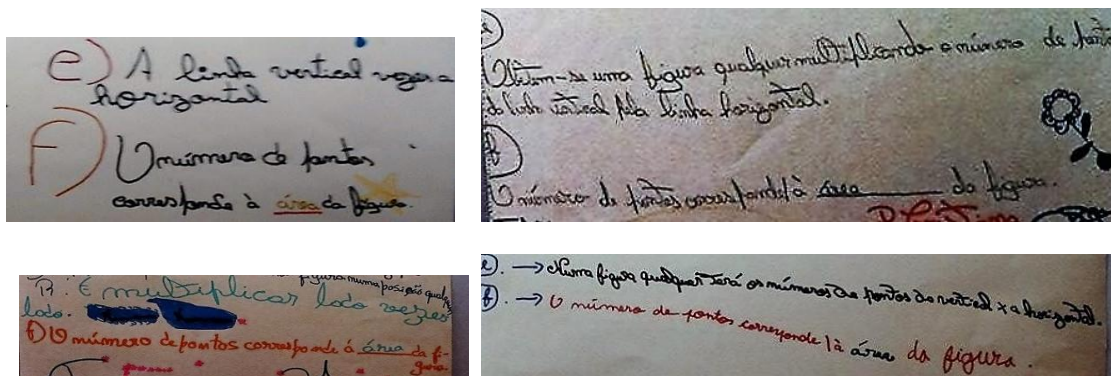 e) A linha vertical vezes a
horizontal
F) O número de pontos
corresponde à área da figura.
e)
Obtém-se uma figura qualquer multiplicando o número de pont
da linha vertical pela linha horizontal.
f)
O número de pontos corresponde à área da figura.
figura numa posição qualq
R: É multiplicar lado vezes
lado.
f) O número de pontos corresponde á área da fi-
gura.
e). → Numa figura qualquer será os números de pontos da vertical x a horizontal.
f). → O número de pontos corresponde à área da figura.